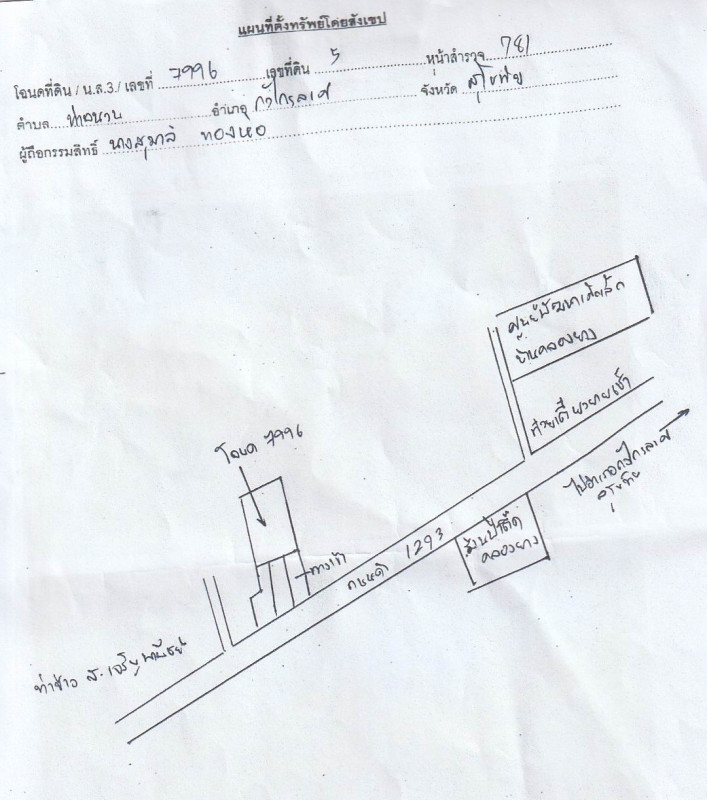 แผนที่ตั้งทรัพย์โดยสังเขป
โฉนดที่ดิน / น.ส.3./ เลขที่ 7996 เลขที่ดิน 5 หน้าสำรวจ 781
ตำบล ท่าฉนวน อำเภอ กงไกรลาศ จังหวัด สุโขทัย
ผู้ถือกรรมสิทธิ์ นางสุมาลี ทองหอ
ศูนย์พัฒนาเด็กเล็ก
บ้านคลองยาง
โฉนด 7996
ทางเข้า
ถนนดำ 1293
ร้านป้าติ๊ด
คลองยาง
ไปอำเภอกงไกรลาศ
สุโขทัย
ท่าข้าว ส.เจริญพาณิชย์